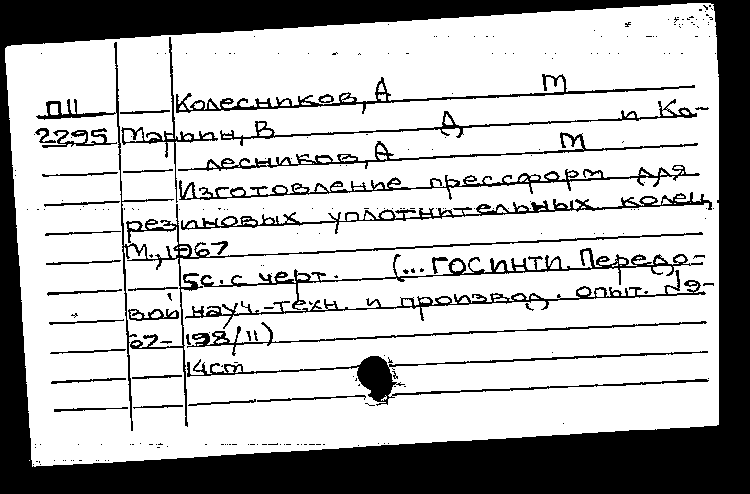 П11 Колесников, А М
2295 Марьин, В Д и Ко-
лесников, А М
Изготовление прессформ для
резиновых уплотнительных колец.
М., 1967
5с. с черт. (...ГОСИНТИ. Передо-
вой науч.-техн. и производ. опыт. №
67-198/11)
14ст